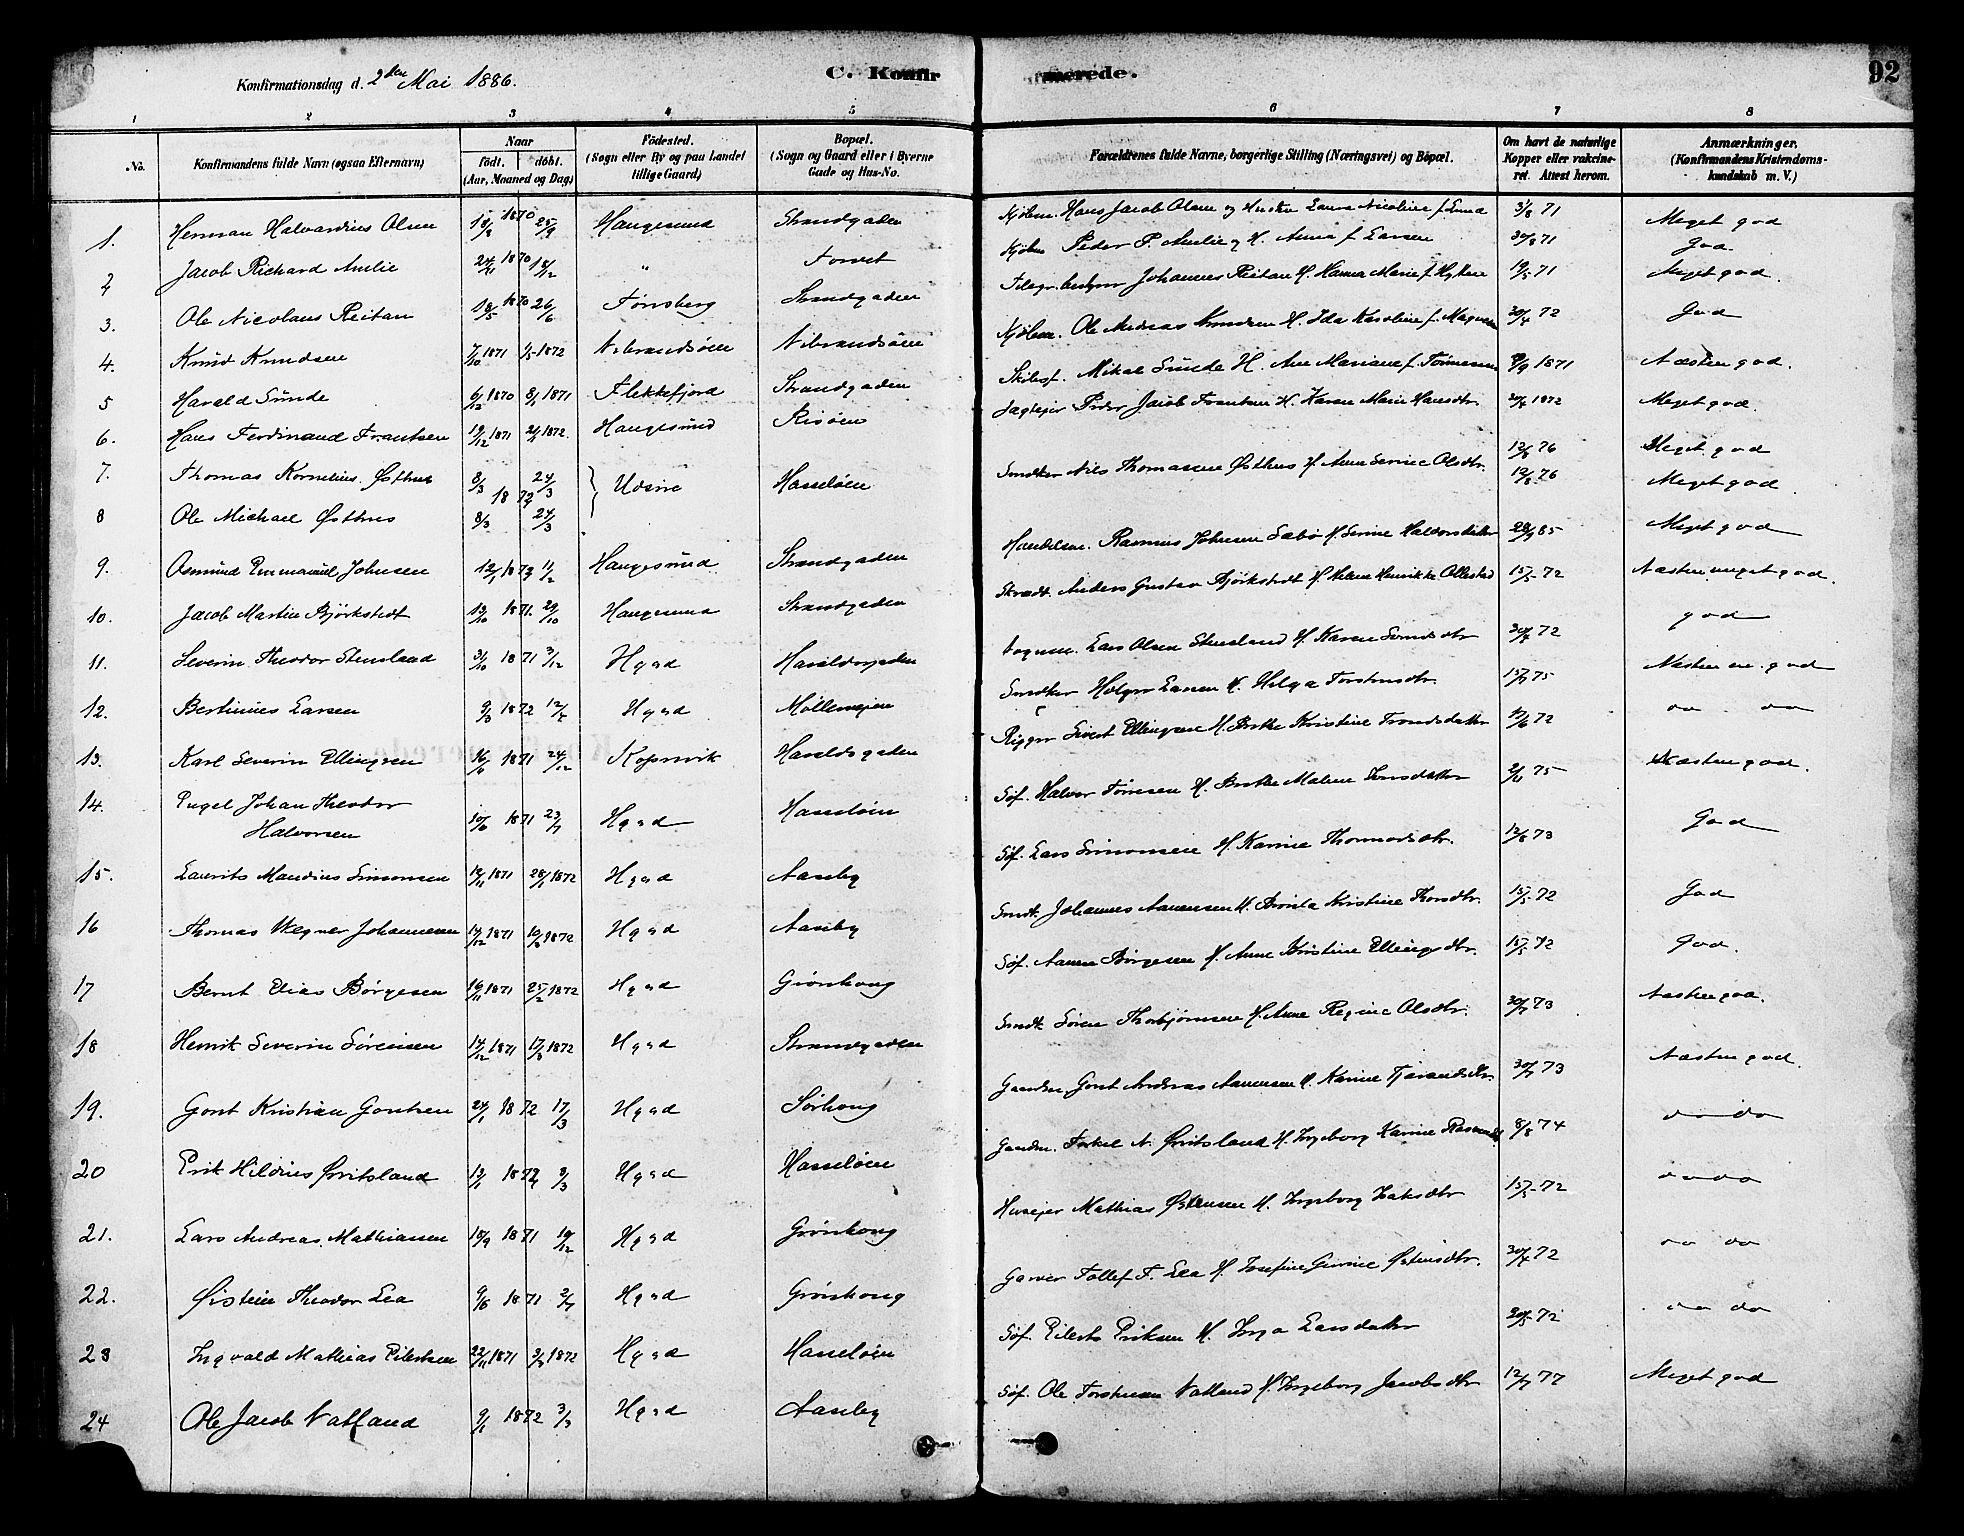 Konfirmationsdag d. 2den Mai 1886.
C. Konfirmerede.
92
1 2 3 4 5 6 7 8
No.
Konfirmandens fulde Navn (ogsaa Efternavn)
Naar
födt. döbt.
(Aar, Maaned og Dag)
Födested.
(Sogn eller By og paa Landet
tillige Gaard)
Bopæl.
(Sogn og Gaard eller i Byerne
Gade og Hus-No.
Forældrenes fulde Navne, borgerlige Stilling (Næringsvei) og Bopæl.
Om havt de naturlige
Kopper eller vakcine-
ret. Attest herom.
Anmærkninger,
(Konfirmandens Kristendoms-
kundskab m. V.)
1. Herman Halvardius Olsen 1870 Haugesund Strandgaden Kjøbm. Hans Jacob Olsen og Hustru Laura Nicoline f. Lund 3/8 71 Meget god
2 Jacob Richard Amlie 24/11 1870 18/12 " Torvet Kjøbm Peder P. Amlie og H. Anna f. Larsen 30/8 71 God
3. Ole Nicolaus Reitan 18/5 1870 26/6 Tønsberg Strandgaden Telegr. bestyrer Johannes Reitan H. Hanna Marie f. 19/5 71 Meget god.
4. Knud Knudsen 7/10 1871 1872 Vibrandsøen Vibrandsøen Kjøbm. Ole Andreas Knudsen H. Ida Karoline f. 30/4 72 God
5 Harald Sunde 6/12 1870 8/1 1871 Flekkefjord Strandgaden Skibsf. Mikal Sunde H. Ane Mariane f. Tønnesen 8/9 1871 Næsten god.
6. Hans Ferdinand Frantsen 19/12 1871 1872. Haugesund Risøen Jagteier Peder Jacob Frantsen H. Karen Marie Hansdtr. 1872 Meget god.
7. Thomas Kornelius Østhus 8/3 1872 24/3 Udsire Hasseløen Snedker Nils Thomassen Østhus H. Anne Serine Olsdtr. 12/8 76 Meget god
8 Ole Michael Østhus 8/3 24/3 12/8 76 Meget god
9. Osmund Emmanuel Johnsen 12/1 1873 11/2 Haugesund Strandgaden Handelsm. Rasmus Johnsen Sæbø H. Serine Haldorsdatter 85 Meget god
10. Jacob Martin Bjørkstedt 13/10 1871. 29/10 Haugesund Strandgaden Skrædt. Anders Gustav Bjørkstedt H. Helene Henrikke Ollestad 15/5 72 Næsten meget god.
11. Severin Theodor Stensland 31/10 1871 3/12 Hgsd Haraldsgaden Vognm. Lars Olsen Stensland H. Karen Svendsdtr 30/4 72 god
12. Bertinius Larsen 9/3 1872 Hgsd Møllevejen Snedker Holger Larsen H. Helga Torstensdtr. 75 Næsten m. god
13. Karl Severin Ellingsen 1871 24/12 Kopervik Haraldsgaden Rigger Sivert Ellingsen H. Berthe Kristine Trondsdatter 72 do do
14. Engel Johan Theodor
Halvorsen 1871 23/7 Hgsd Hasseløen Søf. Halvor Tønnesen H. Berthe Malene 75 Næsten god.
15. Laurits Mandius Simonsen 1871 28/1 1872 Hgsd Aaseby Søf. Lars Simonsen H. Karine Thormodsdtr. 12/8 73 God
16 Thomas Wegner Johannesen 1871 1872 Hgsd Aasby Snedk. Johannes Aanensen H. Berta Kristine 15/5 72 God
17 Bernt Elias Børgesen 1871 25/2 1872 Hgsd Grønhoug Søf. Aanen Børgesen H. Anne Kristine Ellingsdtr. 15/5 72 God.
18 Henrik Severin Sørensen 14/12 1871 17/3 1872 Hgsd Strandgaden Snedk. Søren Thorbjørnsen H. Anne Regine Olsdtr. 73 Næsten god.
19. Gont Kristian Gontsen 24/1 1872 17/3 Hgsd Sørhoug Gaardm. Gont Andreas Aanensen H. Karine 73 Næsten god.
20 Erik Hildius Øvritsland 13/1 1872 3/3 Hgsd Hasseløen Gaardm. Torkel N. Øvritsland H. Ingeborg Karine 8/8 74 do do
21. Lars Andreas Mathiassen 1871 Hgsd Grønhoug Huseier Mathias Østensen H. Ingeborg 15/5 72 do do
22. Øistein Theodor Lea 9/6 1871 2/7 Hgsd Grønhoug Garver Tollef T. Lea H. Josefine Gurine Østensdtr. 30/4 72 do do
23 Ingvald Mathias Eilertsen 22/11 1871 1872 Hgsd Hasseløen Søf. Eilert Eriksen H. Inga Larsdatter 72 do do
24 Ole Jacob Natland 9/1 1872 3/3 Hgsd Aaseby Søf. Ole Torstensen Natland H. Ingeborg Jacobsdtr 77 Meget god